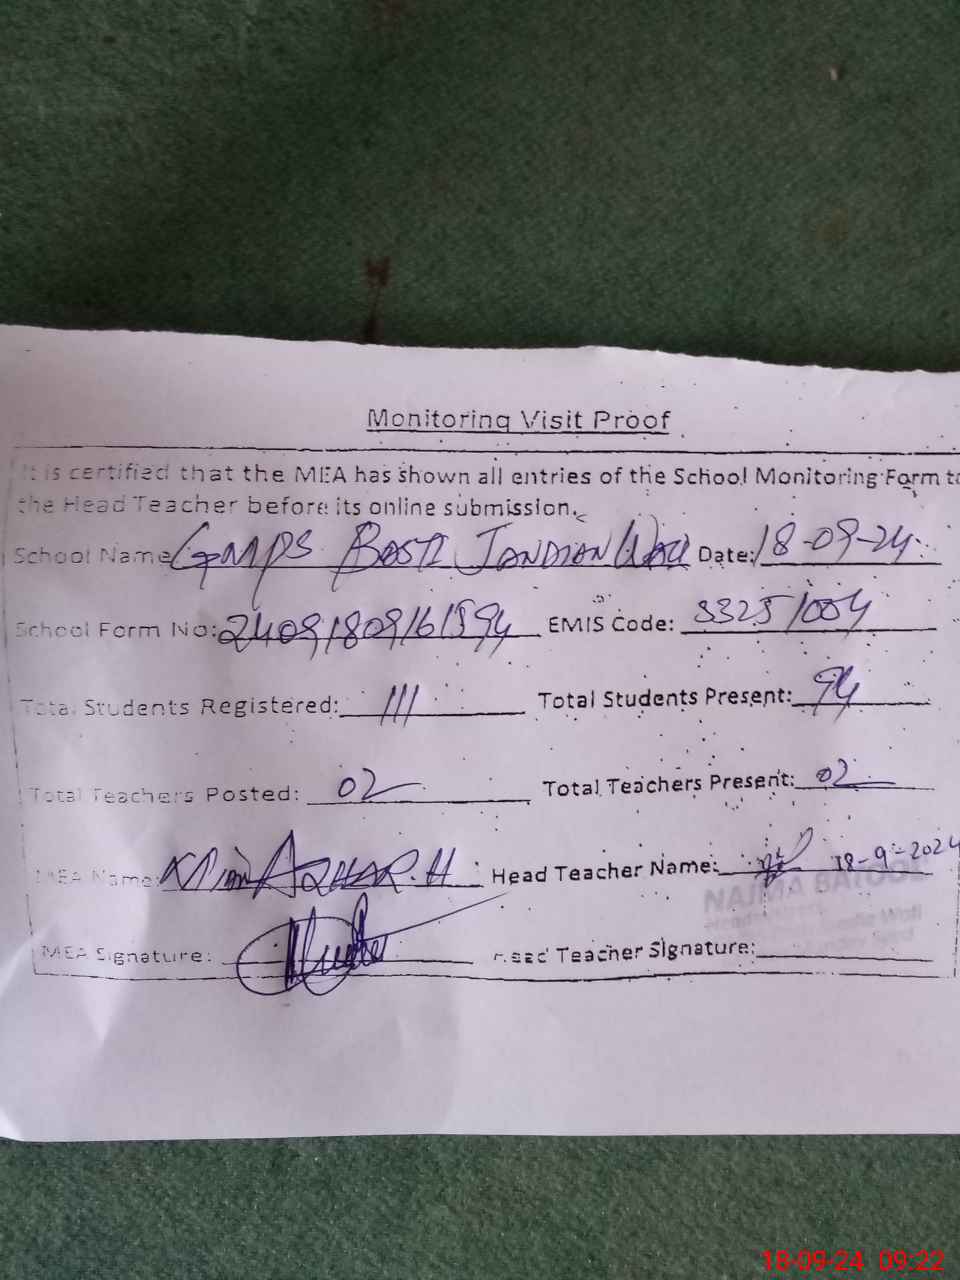 Monitoring Visit Proof
It is certified that the MEA has shown all entries of the School Monitoring Form to
the Head Teacher before its online submission.
School Name GMPS BASTI JANDIAN WALI Date: 18-09-24
School Form No: 24091809161594 EMIS Code: 33251004
Total Students Registered: 111 Total Students Present: 94
Total Teachers Posted: 02 Total Teachers Present: 02
MEA Name: MIAN AZHAR.H Head Teacher Name: 18-9-2024
NAJMA BATOOL
MEA Signature: Head Teacher Signature:
18-09-24 09:22